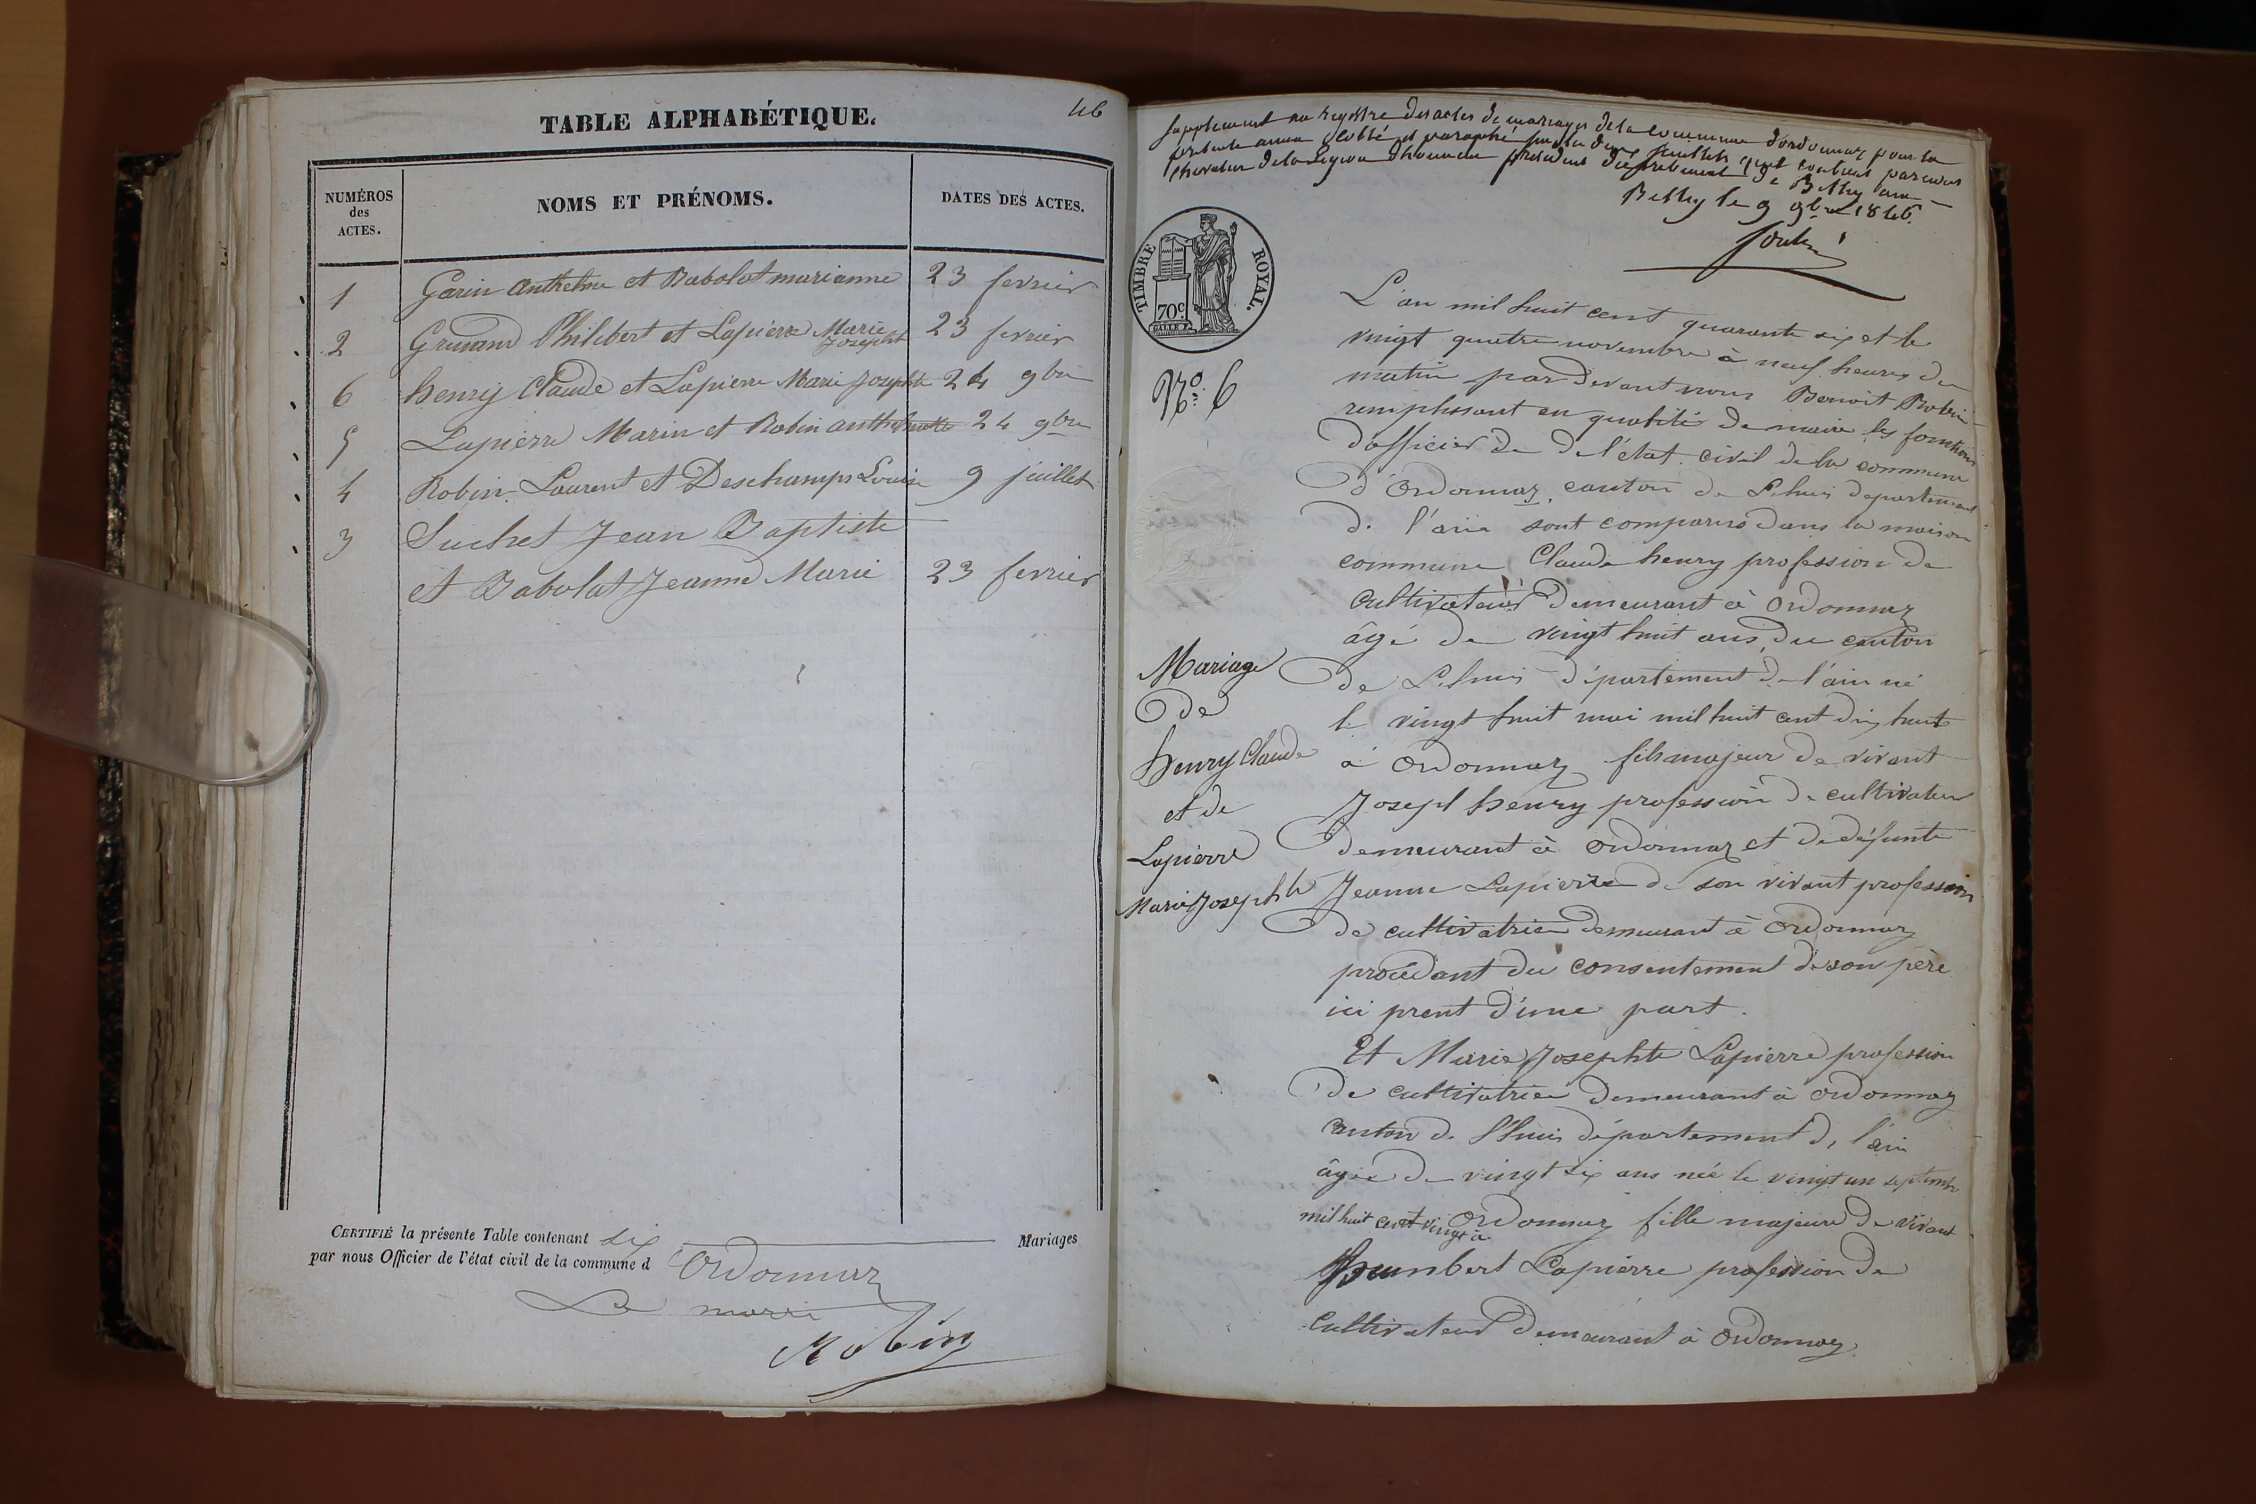 TABLE ALPHABÉTIQUE.
46
NUMÉROS
des
ACTES.
NOMS ET PRÉNOMS.
DATES DES ACTES.
1 Garin Anthelme et Babolat marianne 23 fevrier
2 Philibert et Lapierre Marie Josephte 23 fevrier
6 henry Claude et Lapierre Marie Josephte 24 9bre
5 Lapierre Marin et Robin 24 9bre
4 Robin Laurent et Deschamps Louise 9 juillet
3 Suchet Jean Baptiste
et Babolat Jeanne Marie 23 fevrier
CERTIFIÉ la présente Table contenant six Mariages
par nous Officier de l'état civil de la commune d Ordonnaz
Le maire
Robin
Supplement au registre des actes de mariages de la commune d'ordonnaz pour la
présente année cotté et paraphé sur les deux feuillets qu'il contient par nous
chevalier de la Legion d'honneur président du tribunal de Belley
Belley le 9 9bre 1846.
TIMBRE ROYAL.
70c.
No. 6
Mariage
de
henry Claude
et de
Lapierre
Marie Josephte
L'an mil huit cent quarante six et le
vingt quatre novembre à neuf heures du
matin par devant nous Benoit Robin
remplissant en qualité de maire les fonctions
d'officier de de l'état civil de la commune
d'Ordonnaz, canton de Lhuis departement
de l'ain sont comparus dans la maison
commune Claude henry profession de
cultivateur demeurant à Ordonnaz
âgé de vingt huit ans, du canton
de Lhuis département de l'ain né
le vingt huit mai mil huit cent dix huit
à Ordonnaz fils majeur de vivant
Joseph henry profession de cultivateur
demeurant à Ordonnaz et de défunte
Jeanne Lapierre de son vivant profession
de cultivatrice demeurant à Ordonnaz
procédant du consentement de son père
ici prent d'une part.
Et Marie Josephte Lapierre profession
de cultivatrice demeurant à Ordonnaz
canton de Lhuis département de l'ain
âgée de vingt six ans née le vingt un septembre
mil huit cent vingt à Ordonnaz fille majeure de vivant
humbert Lapierre profession de
cultivateur demeurant à Ordonnaz